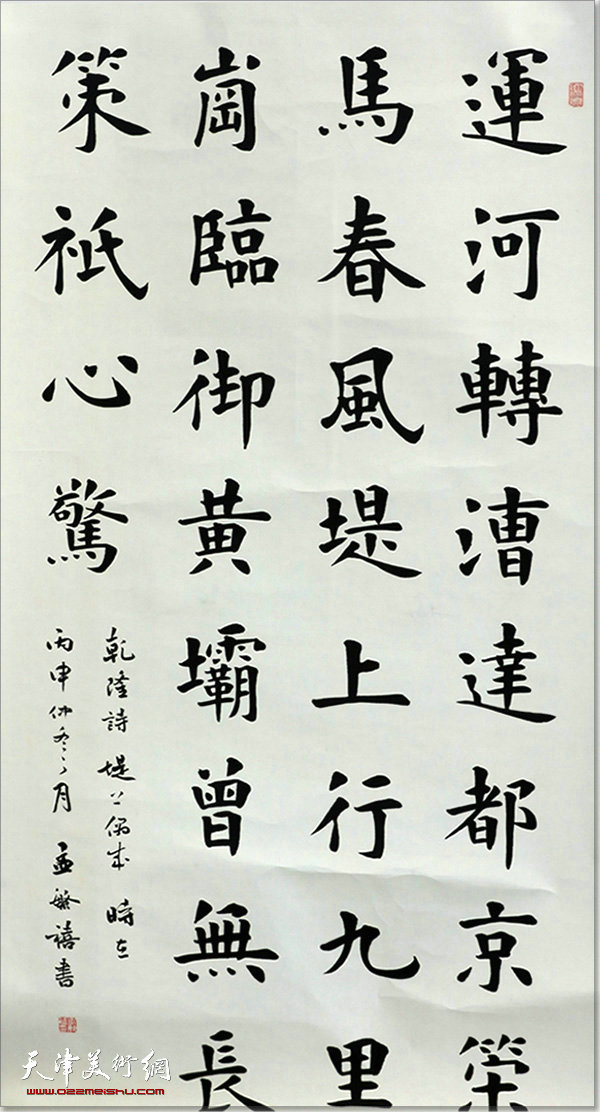 運河轉漕達都京策
馬春風堤上行九里
崗臨御黄壩曾無長
策祇心驚
乾隆詩堤上偶成 時在
丙申仲冬之月 孟敏禧書
天津美術網
www.022meishu.com